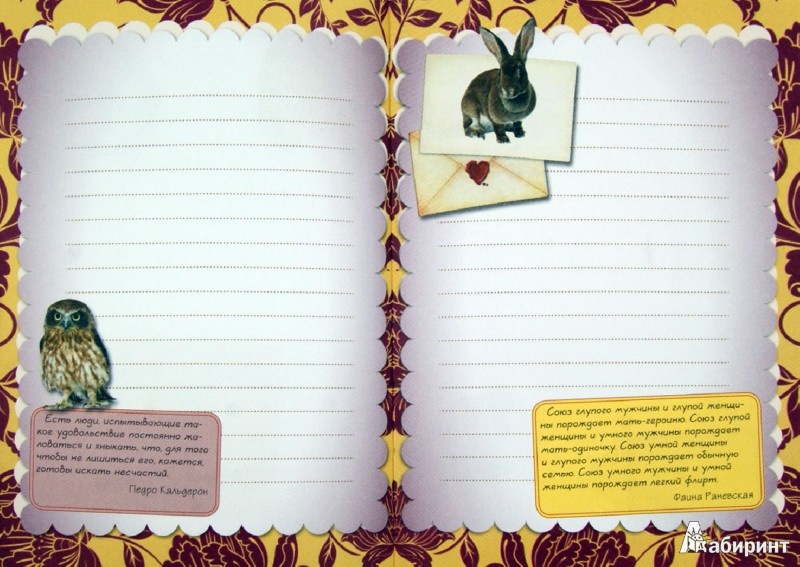 Есть люди, испытывающие та-
кое удовольствие постоянно жа-
ловаться и хныкать, что, для того
чтобы не лишиться его, кажется,
готовы искать несчастий.
Педро Кальдерон
Союз глупого мужчины и глупой женщи-
ны порождает мать-героиню. Союз глупой
женщины и умного мужчины порождает
мать-одиночку. Союз умной женщины
и глупого мужчины порождает обычную
семью. Союз умного мужчины и умной
женщины порождает легкий флирт.
Фаина Раневская
Лабиринт